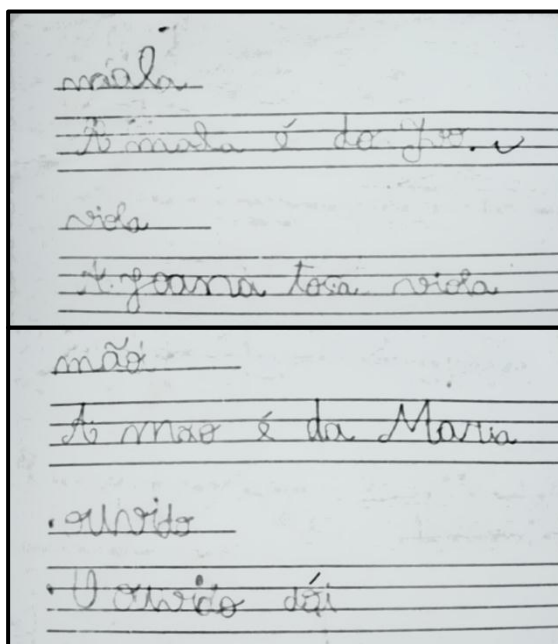 mala
A mala é do Ivo.
viola
A Joana toca viola
mão
A mão é da Maria
ouvido
O ouvido dói